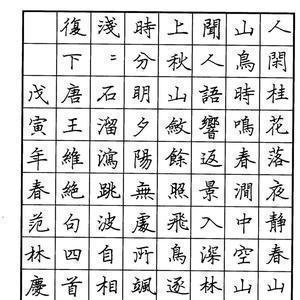 人閑桂花落夜靜春山
山鳥時鳴春澗中空山
聞人語響返景入深林
上秋山斂餘照飛鳥逐
時分明夕陽無處所颯
淺〻石溜瀉跳波自相
復下唐王維絶句四首
戊寅年春范林慶